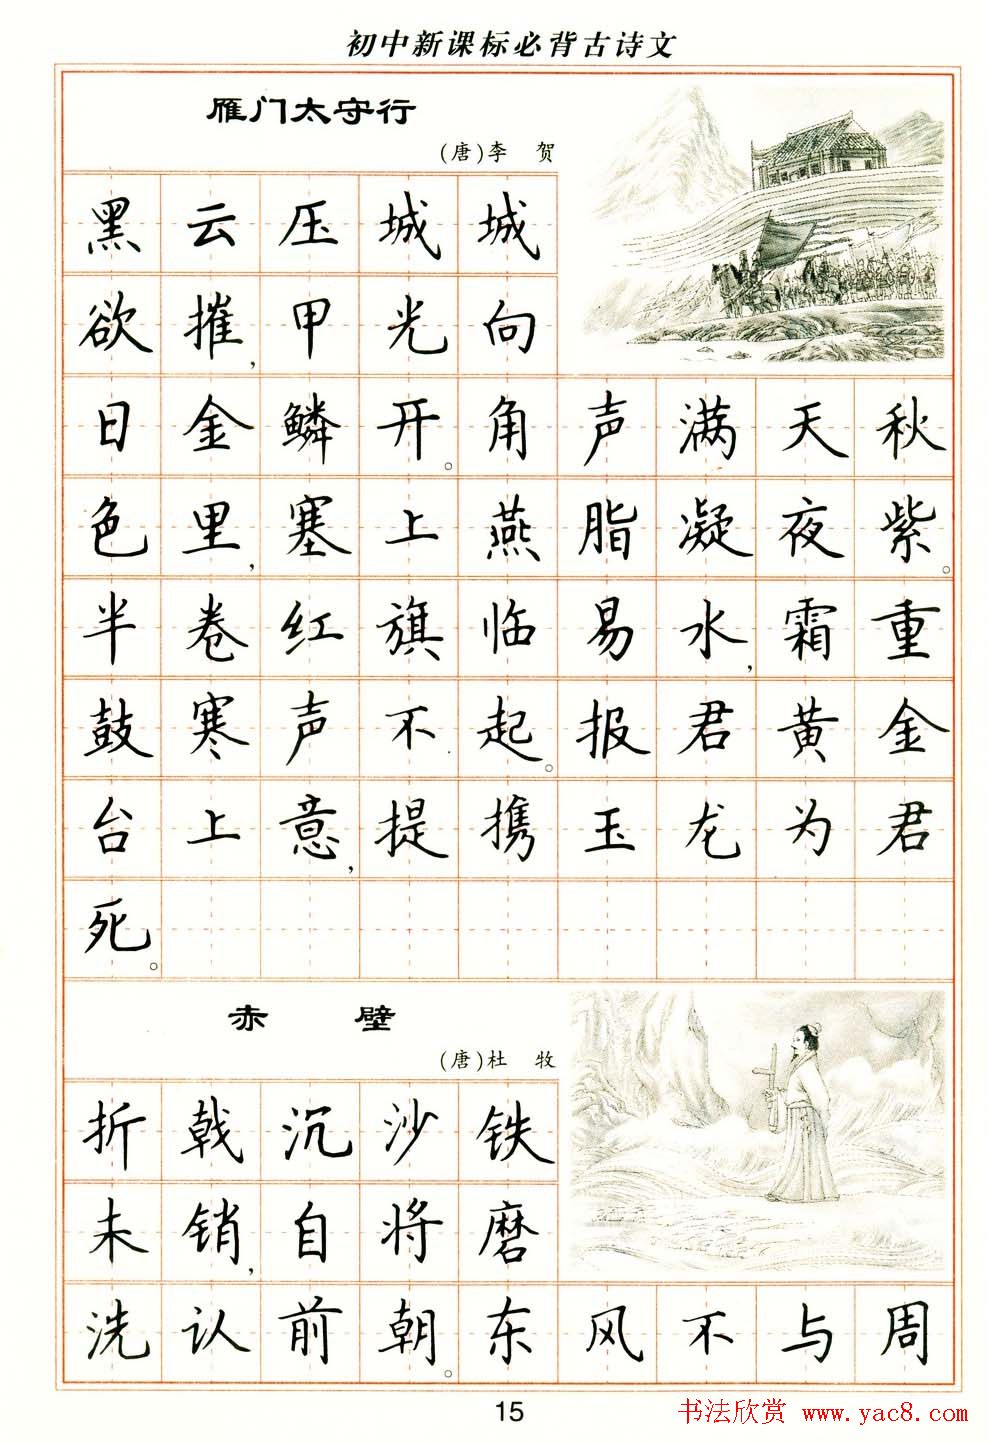 初中新课标必背古诗文
雁门太守行
(唐)李 贺
黑云压城城
欲摧,甲光向
日金鳞开。角声满天秋
色里,塞上燕脂凝夜紫。
半卷红旗临易水,霜重
鼓寒声不起。报君黄金
台上意,提携玉龙为君
死。
赤 壁
(唐)杜 牧
折戟沉沙铁
未销,自将磨
洗认前朝。东风不与周
15
书法欣赏 www.yac8.com